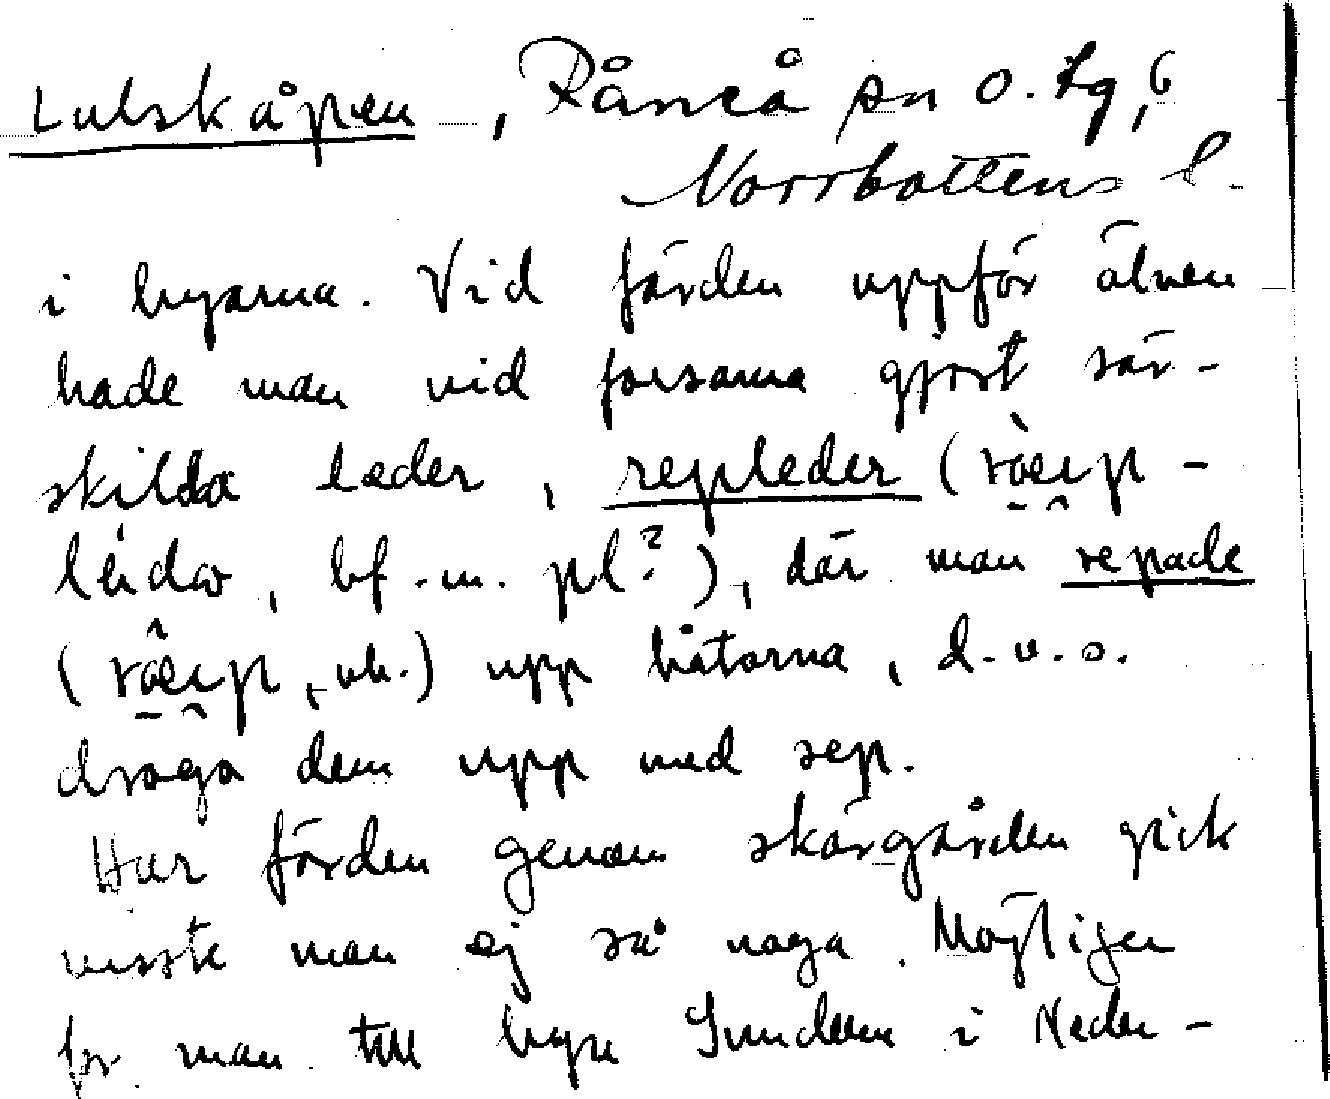 Lulskåpen, Råneå sn o. tg, 6
Norrbottens l.
i byarna. Vid färden uppför älven
hade man vid forsarna gjort sär-
skilda leder, repleder (
bf. m. pl?), där man repade
( vb.) upp båtarna, d.v.s.
draga dem upp med rep.
Hur färden genom skärgården gick
visste man ej så noga. Möjligen
for man till byn Sundom i Neder-